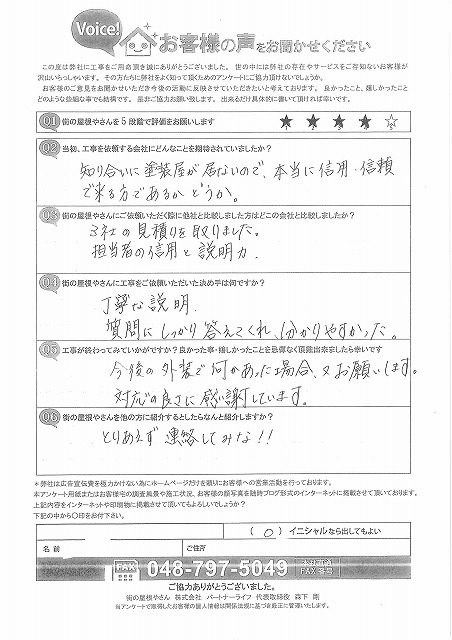 Voice!
お客様の声をお聞かせください
この度は弊社に工事をご用命頂き誠にありがとうございました。 世の中には弊社の存在やサービスをご存知ないお客様が
沢山いらっしゃいます。 その方たちに弊社をよく知って頂くためのアンケートにご協力頂けないでしょうか。
お客様のご意見をお聞かせいただき今後の活動に反映させていただきたいと考えております。 良かったこと、嬉しかったこと
どのような些細な事でも結構です。 是非ご協力お願い致します。 出来るだけ具体的に書いて頂ければ幸いです。
Q1 街の屋根やさんを5段階で評価をお願いします ★ ★ ★ ★ ☆
Q2 当初、工事を依頼する会社にどんなことを期待されていましたか?
知り合いに塗装屋が居ないので、本当に信用・信頼
で来る方であるかどうか。
Q3 街の屋根やさんにご依頼いただく際に他社と比較しました方はどこの会社と比較しましたか?
3社の見積りを取りました。
担当者の信用と説明力.
Q4 街の屋根やさんに工事をご依頼いただいた決め手は何ですか?
丁寧な説明.
質問にしっかり答えてくれ、分かりやすかった。
Q5 工事が終わってみていかがですか?良かった事・嬉しかったことを忌憚なく頂戴出来ましたら幸いです
今後の外装で何かあった場合、又お願いします。
対応の良さに感謝しています。
Q6 街の屋根やさんを他の方に紹介するとしたらなんと紹介しますか?
とりあえず連絡してみな!!
*弊社は広告宣伝費を極力かけない為にホームページだけを頼りにお客様への営業活動を行っております。
本アンケート用紙またはお客様宅の調査風景や施工状況、お客様の顔写真を随時ブログ形式のインターネットに掲載させて頂いております。
上記内容をインターネットや印刷物に掲載させて頂いてもよろしいでしょうか?
下記の中から〇印をお付下さい。
( O ) イニシャルなら出してもよい
名 前
ご住所
FAX 048-797-5049
ご協力ありがとうございました。
街の屋根やさん 株式会社 パートナーライフ 代表取締役 森下 剛
当アンケートで取得したお客様の個人情報は関係法規に基づき厳正に管理いたします。